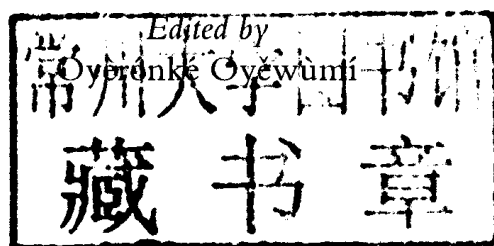 Edited by
Oyèrónké Oyěwùmí
常州大学图书馆
藏书章